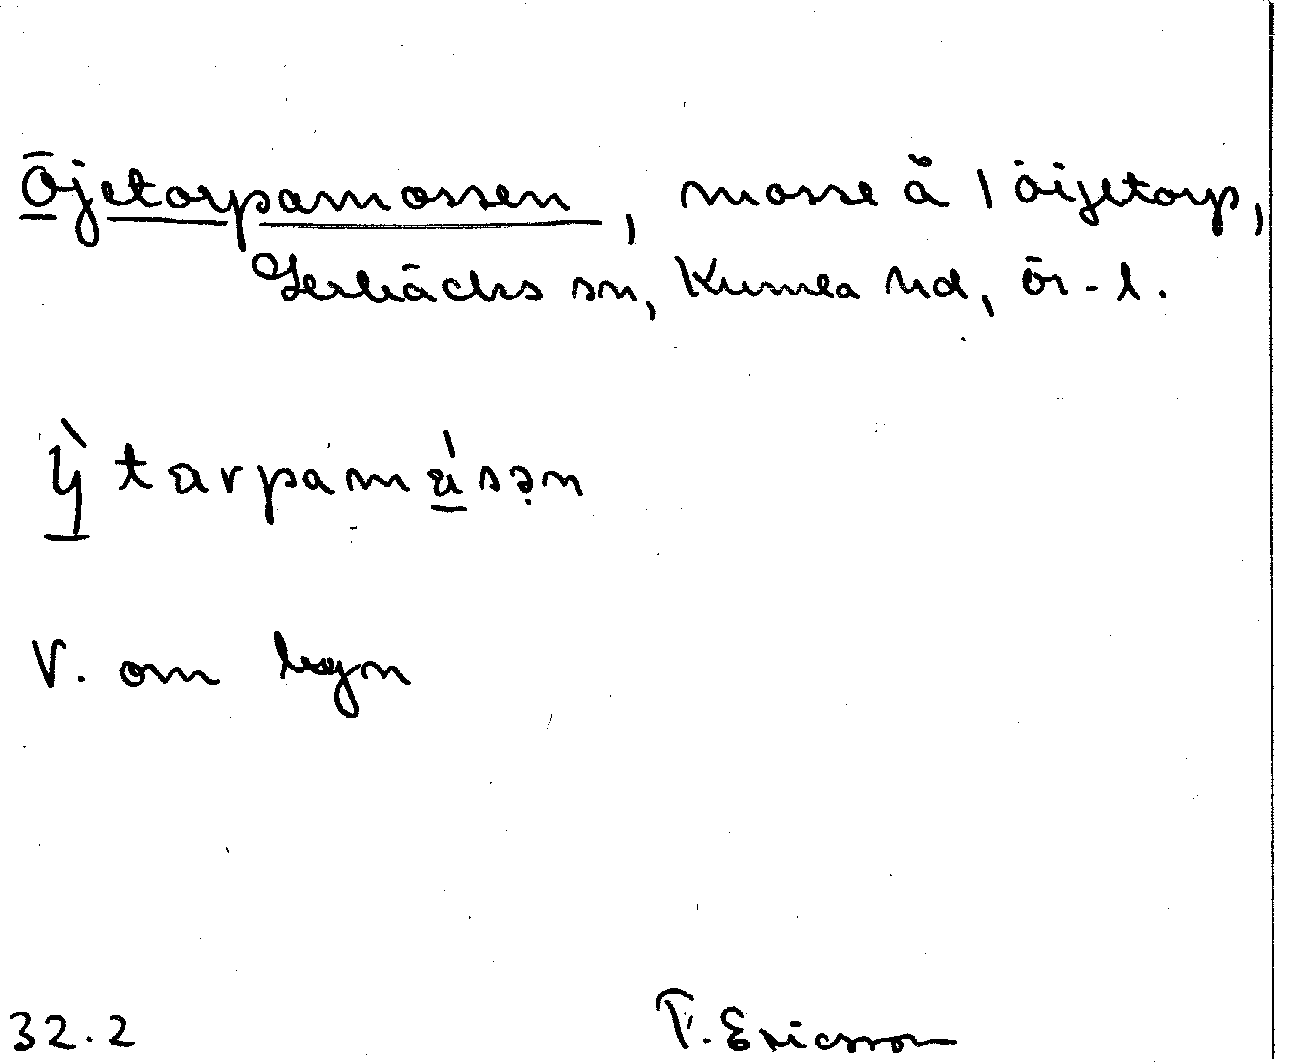 Öjetorpamossen, mosse å 1 öijetorp,
Lerbäcks sn, Kumla hd, ör-l.
ỳtarpamásən
V. om byn
32.2 F. Ericsson